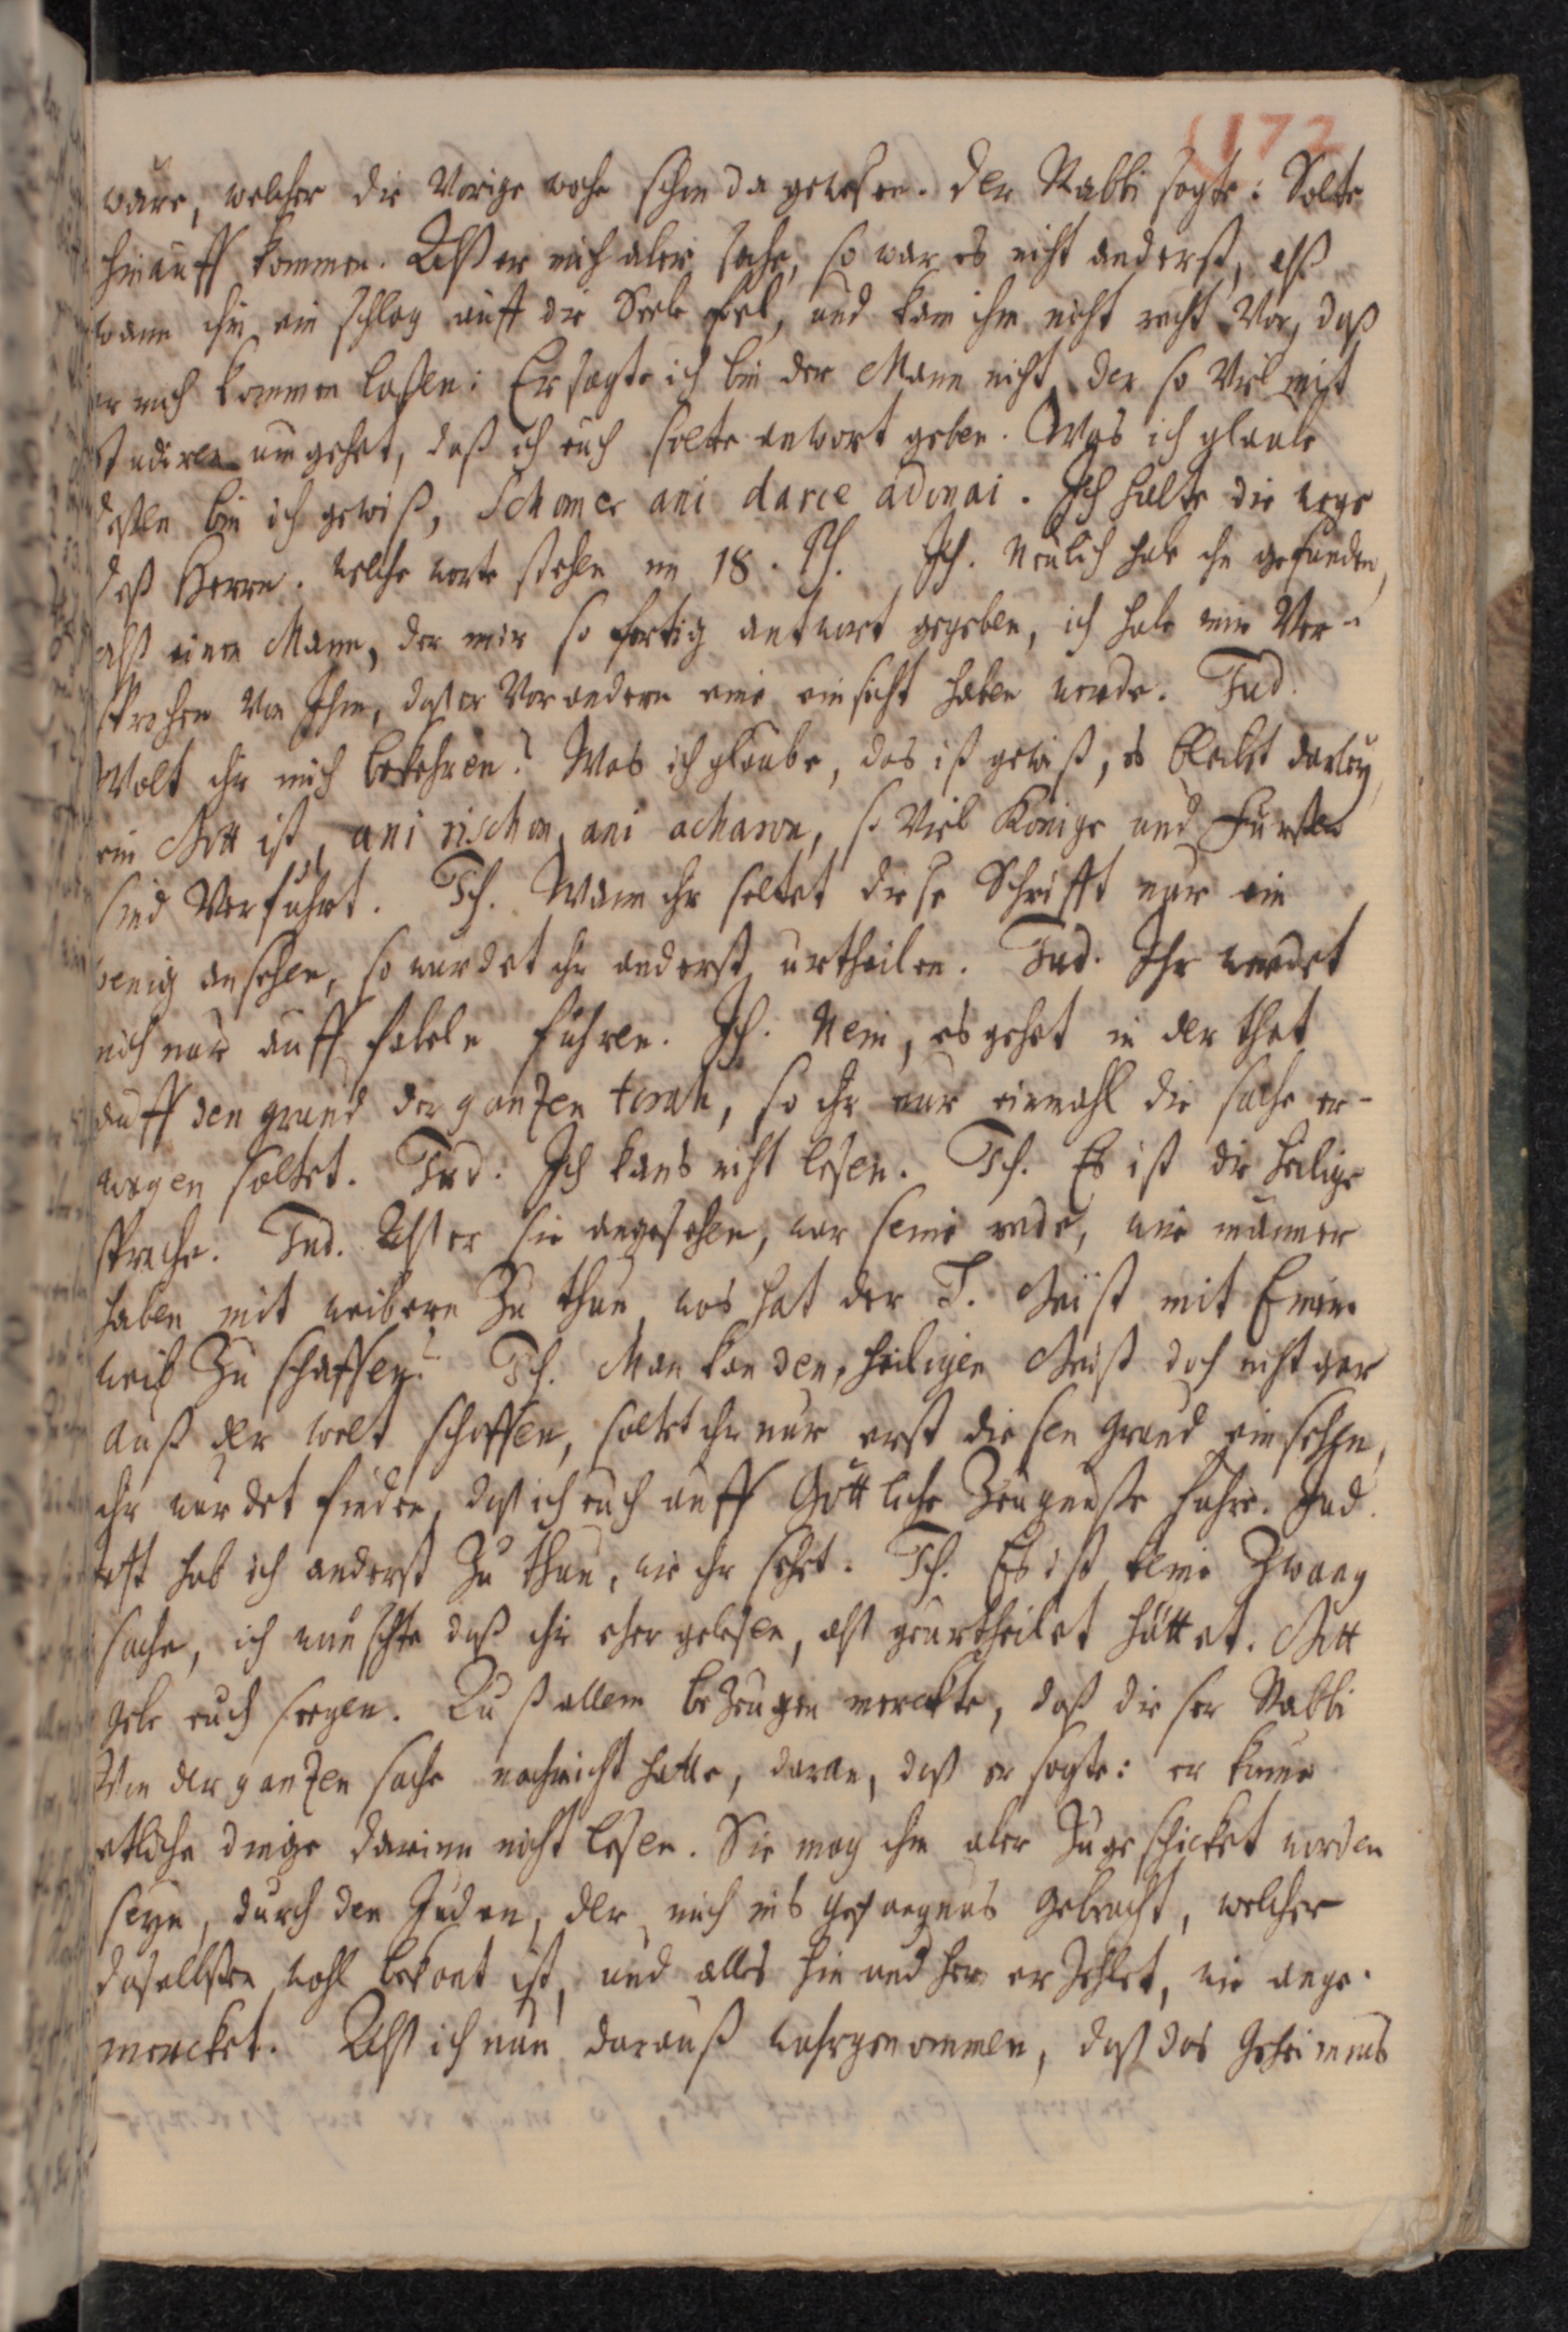 172
ware, welcher die Vorige woche schon da gewesen. Der Rabbi sagte: Solte
hinauff kommen. Alß er mich aber sahe, so war es nicht anderst, alß
wann ihm ein schlag auff die Seele fiel, und kam ihm nicht recht Vor, daß
er mich kommen laßen: Er sagte ich bin der Mann nicht, der so Viel mit
Studiren umgehet, daß ich euch solte antwort geben. Was ich glaube
deßen bin ich gewiß, Schomer ani darce adonai. Ich halte die wege
deß Herrn. welche worte stehen im 18. Ps. Ich. Neulich hab ihn gefunden,
alß einen Mann, der mir so fertig antwort gegeben, ich habe mir Ver-
sprochen Von Ihm, daß er Vor andern eine einsicht haben werde. Jud.
Wolt ihr mich bekehren? Was ich glaube, das ist gewiß, es bleibt darbey
ein Gott ist, ani rischon, ani acharon, so Viel Könige und Fürsten
sind Verführt. Ich. Wann ihr soltet diese Schrifft nur ein
wenig ansehen, so würdet ihr anderst urtheilen. Jud. Ihr werdet
mich nur auff fabeln führen. Ich. Nein, es gehet in der that
auff den grund der gantzen torah, so ihr nur einmahl die sache er-
wegen soltet. Jud. Ich kans nicht lesen. Ich. Es ist die heilige
sprache. Jud. Alß er sie angesehen, war seine rede, wie männer
haben mit weibern Zu thun, was hat der H. Geist mit Einem
weib Zu schaffen? Ich. Man kan den heiligen Geist doch nicht gar
auß der welt schaffen, soltet ihr nur erst diesen grund einsehen,
ihr würdet finden, daß ich euch auff Göttliche Zeugnuße führe. Jud.
Jetzt hab ich anderst Zu thun, wie ihr sehet. Ich. Es ist keine Zwang
sache, ich wünschte daß ihr eher gelesen, alß geurtheilet hättet. Gott
gebe euch seegen. Auß allem beZeugen merckte, daß dieser Rabbi
Von der gantzen sache nachricht hatte, daran, daß er sagte: er könne
etliche dinge darinn nicht lesen. Sie mag ihm aber Zugeschicket worden
seyn, durch den Juden, der mich ins gefängnus gebracht, welcher
daselbsten wohl bekant ist, und alles hin und her erzehlet, wie ange-
mercket. Alß ich nun darauß wahrgenommen, daß das Geheimnus